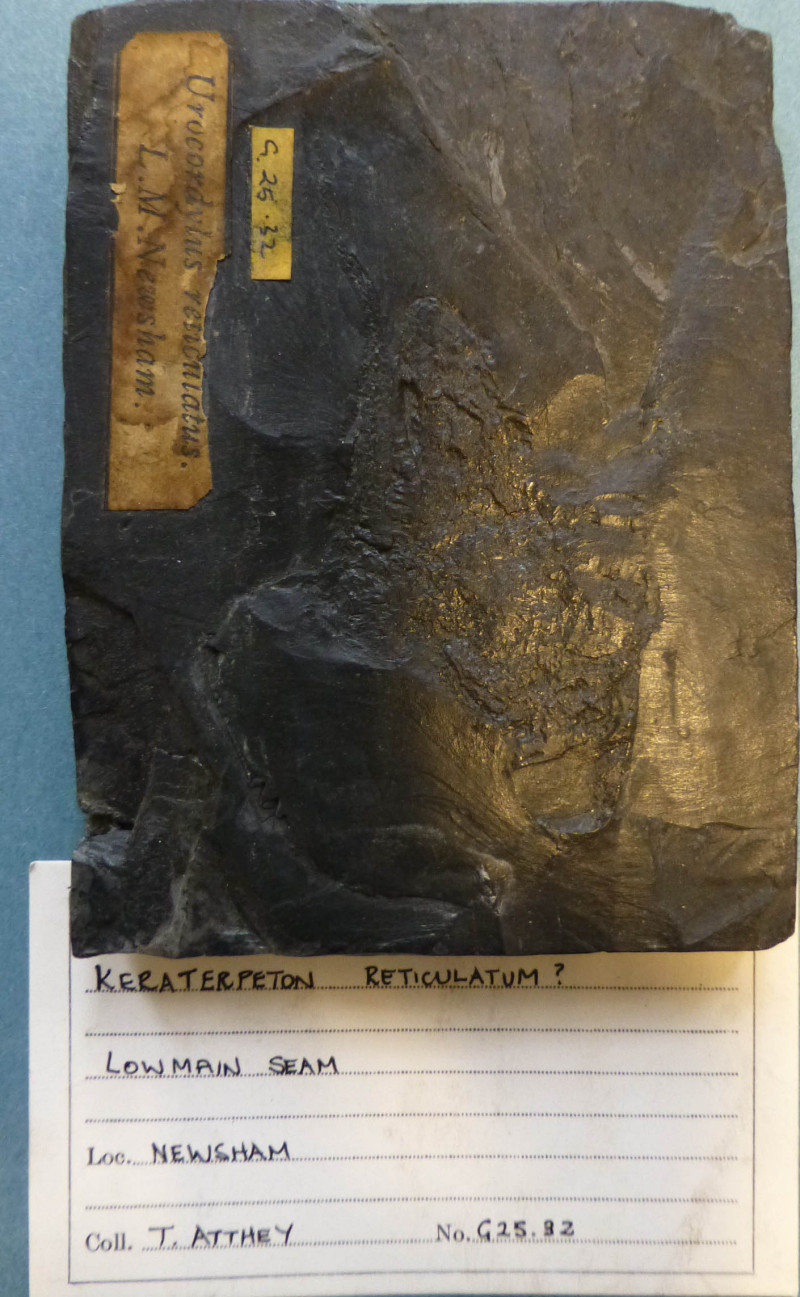 Urocordylus reticulatus.
L.M. Newsham.
G. 25. 32
KERATERPETON RETICULATUM?
LOWMAIN SEAM
Loc. NEWSHAM
Coll. T. ATTHEY No. G25.32